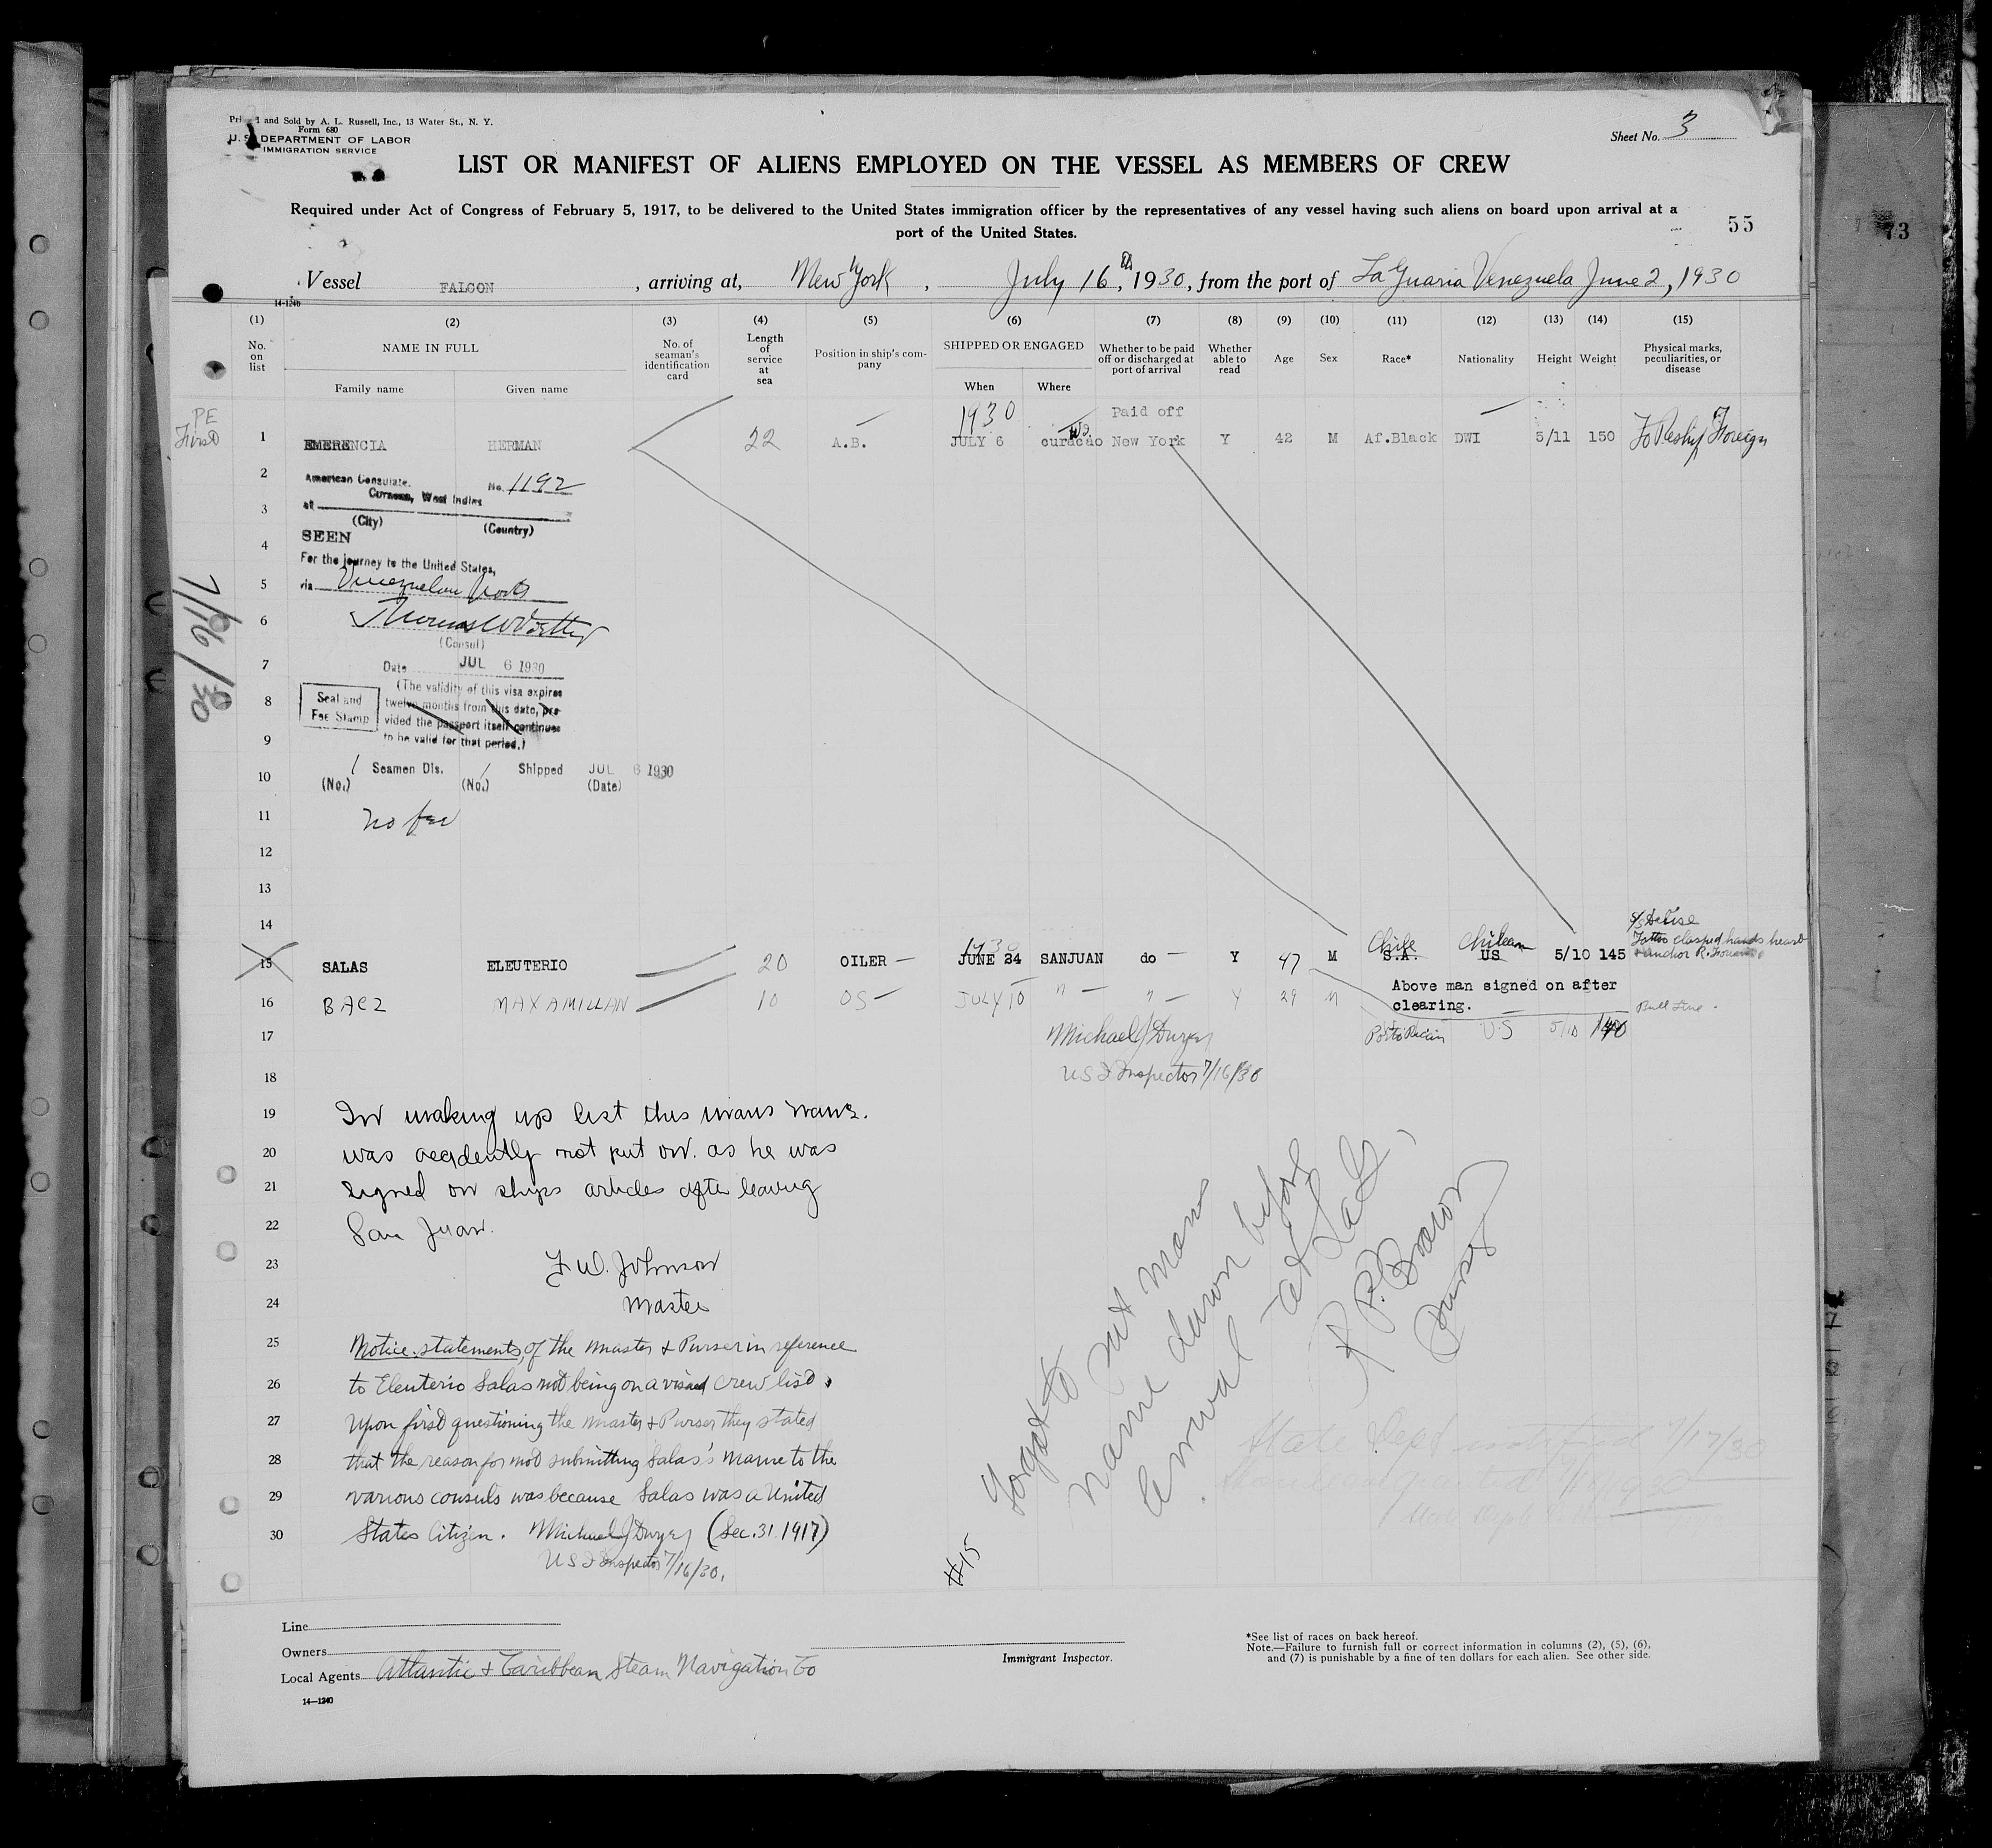 Sheet No. 3
and Sold by A. L. Russell, Inc., 13 Water St., N. Y.
Form 680
U. S. DEPARTMENT OF LABOR
IMMIGRATION SERVICE
LIST OR MANIFEST OF ALIENS EMPLOYED ON THE VESSEL AS MEMBERS OF CREW
Required under Act of Congress of February 5, 1917, to be delivered to the United States immigration officer by the representatives of any vessel having such aliens on board upon arrival at a
port of the United States.
55
73
Vessel FALCON, arriving at, New York, July 16th, 1930, from the port of La Guaria Venezuela June 2, 1930
14-1240
(1) (2) (3) (4) (5) (6) (7) (8) (9) (10) (11) (12) (13) (14) (15)
No. on list
NAME IN FULL
Family name
Given name
No. of seaman's identification card
Length of service at sea
Position in ship's company
SHIPPED OR ENGAGED
When
Where
Whether to be paid off or discharged at port of arrival
Whether able to read
Age
Sex
Race*
Nationality
Height
Weight
Physical marks, peculiarities, or disease
PE
First
1930 Paid off
1 EMERENCIA HERMAN 22 A.B. JULY 6 curacao New York Y 42 M Af.Black DWI 5/11 150 To Reship Foreign
2
American Consulate. No. 1192
Curacao, West Indies
3
at
(City) (Country)
4
SEEN
For the journey to the United States,
5
via Venezuelan Ports
6
(Consul)
7
Date JUL 6 1930
8
Seal and Fee Stamp
(The validity of this visa expires
twelve months from this date, pro-
vided the passport itself continues
9
to be valid for that period.)
7/16/30
10
1 Seamen Dis. 1 Shipped JUL 6 1930
(No.) (No.) (Date)
11
no fee
12
13
14
1930 Chile Chilean
Tattoo clasped hands heart
15 SALAS ELEUTERIO 20 OILER JUNE 24 SANJUAN do Y 47 M S.A. US 5/10 145 anchor R.
Above man signed on after
clearing.
16 BAEZ MAXAMILLAN 10 OS JULY 10 " " Y 29 M
Bull Line.
17
Porto Rican U.S 5/10 140
Michael J Dwyer
18
U S I Inspector 7/16/30
19 In making up list this mans name.
20 was accidently not put on. as he was
21 signed on ships articles after leaving
22 San Juan.
23 F W. Johnson
24 Master
25 Notice statements, of the Master & Purser in reference
26 to Eleuterio Salas not being on a visaed crew list.
27 Upon first questioning the Master & Purser they stated
28 that the reason for not submitting Salas's name to the
29 various consuls was because Salas was a United
30 States Citizen. Michael J Dwyer (Sec. 31. 1917)
U S I Inspector 7/16/30.
#15
Forgot to put mans
name down before
arrival at
R P. Brown
Purser
State Dept notified 7/17/30
Line
Owners
Local Agents Atlantic & Caribbean Steam Navigation Co
14—1240
Immigrant Inspector.
*See list of races on back hereof.
Note.—Failure to furnish full or correct information in columns (2), (5), (6),
and (7) is punishable by a fine of ten dollars for each alien. See other side.